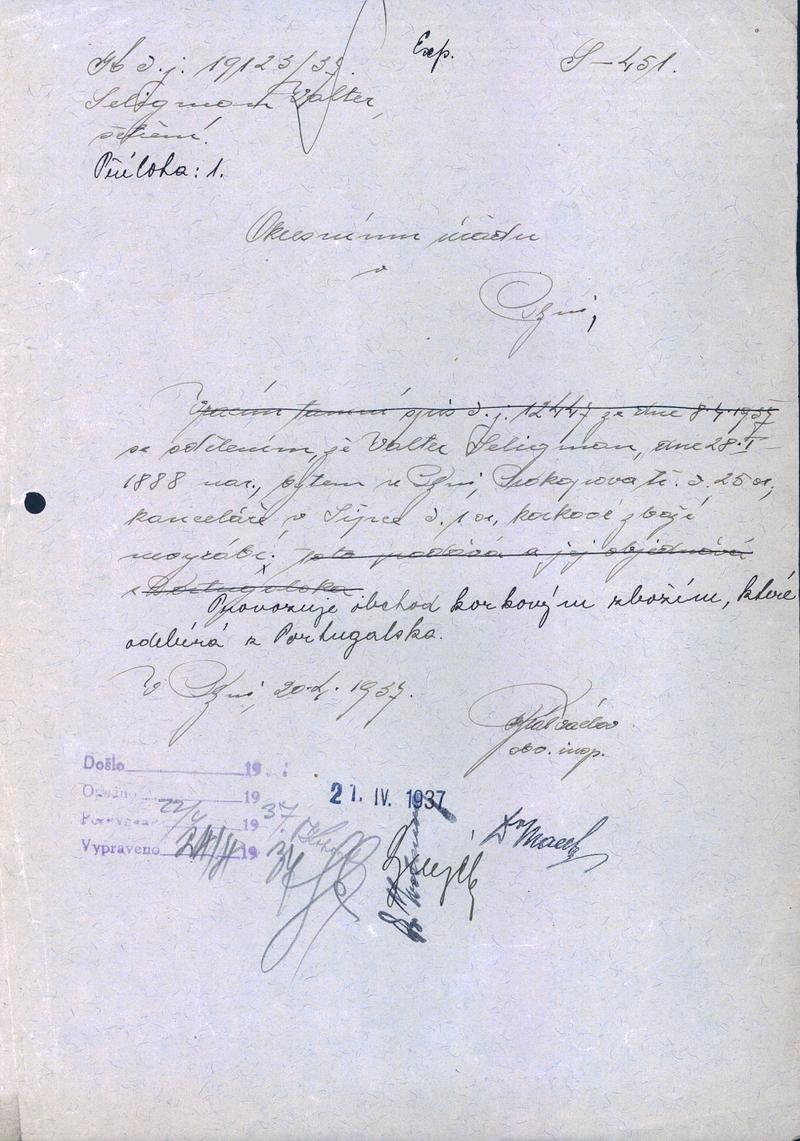 Exp.
č. j. 19123/37. S-451.
Seligman Valter,
šetření.
Příloha: 1.
Okresnímu úřadu
v
Plzni,
Vracím tamní spis č. j. 12447 ze dne 8.4.1937
se sdělením, že Valter Seligman, dne 28.I.
1888 nar., bytem v Plzni, Prokopova tř. č. 25 a,
kanceláře v č. 1 a, korkové zboží
nevyrábí; toto prodává a jej objednává
z Portugalska.
Provozuje obchod korkovým zbožím, které
odebírá z Portugalska.
V Plzni, 20.4.1937.
obv. insp.
Došlo 19
21. IV. 1937
22/4 19 37.
Vypraveno 24/4 19 37